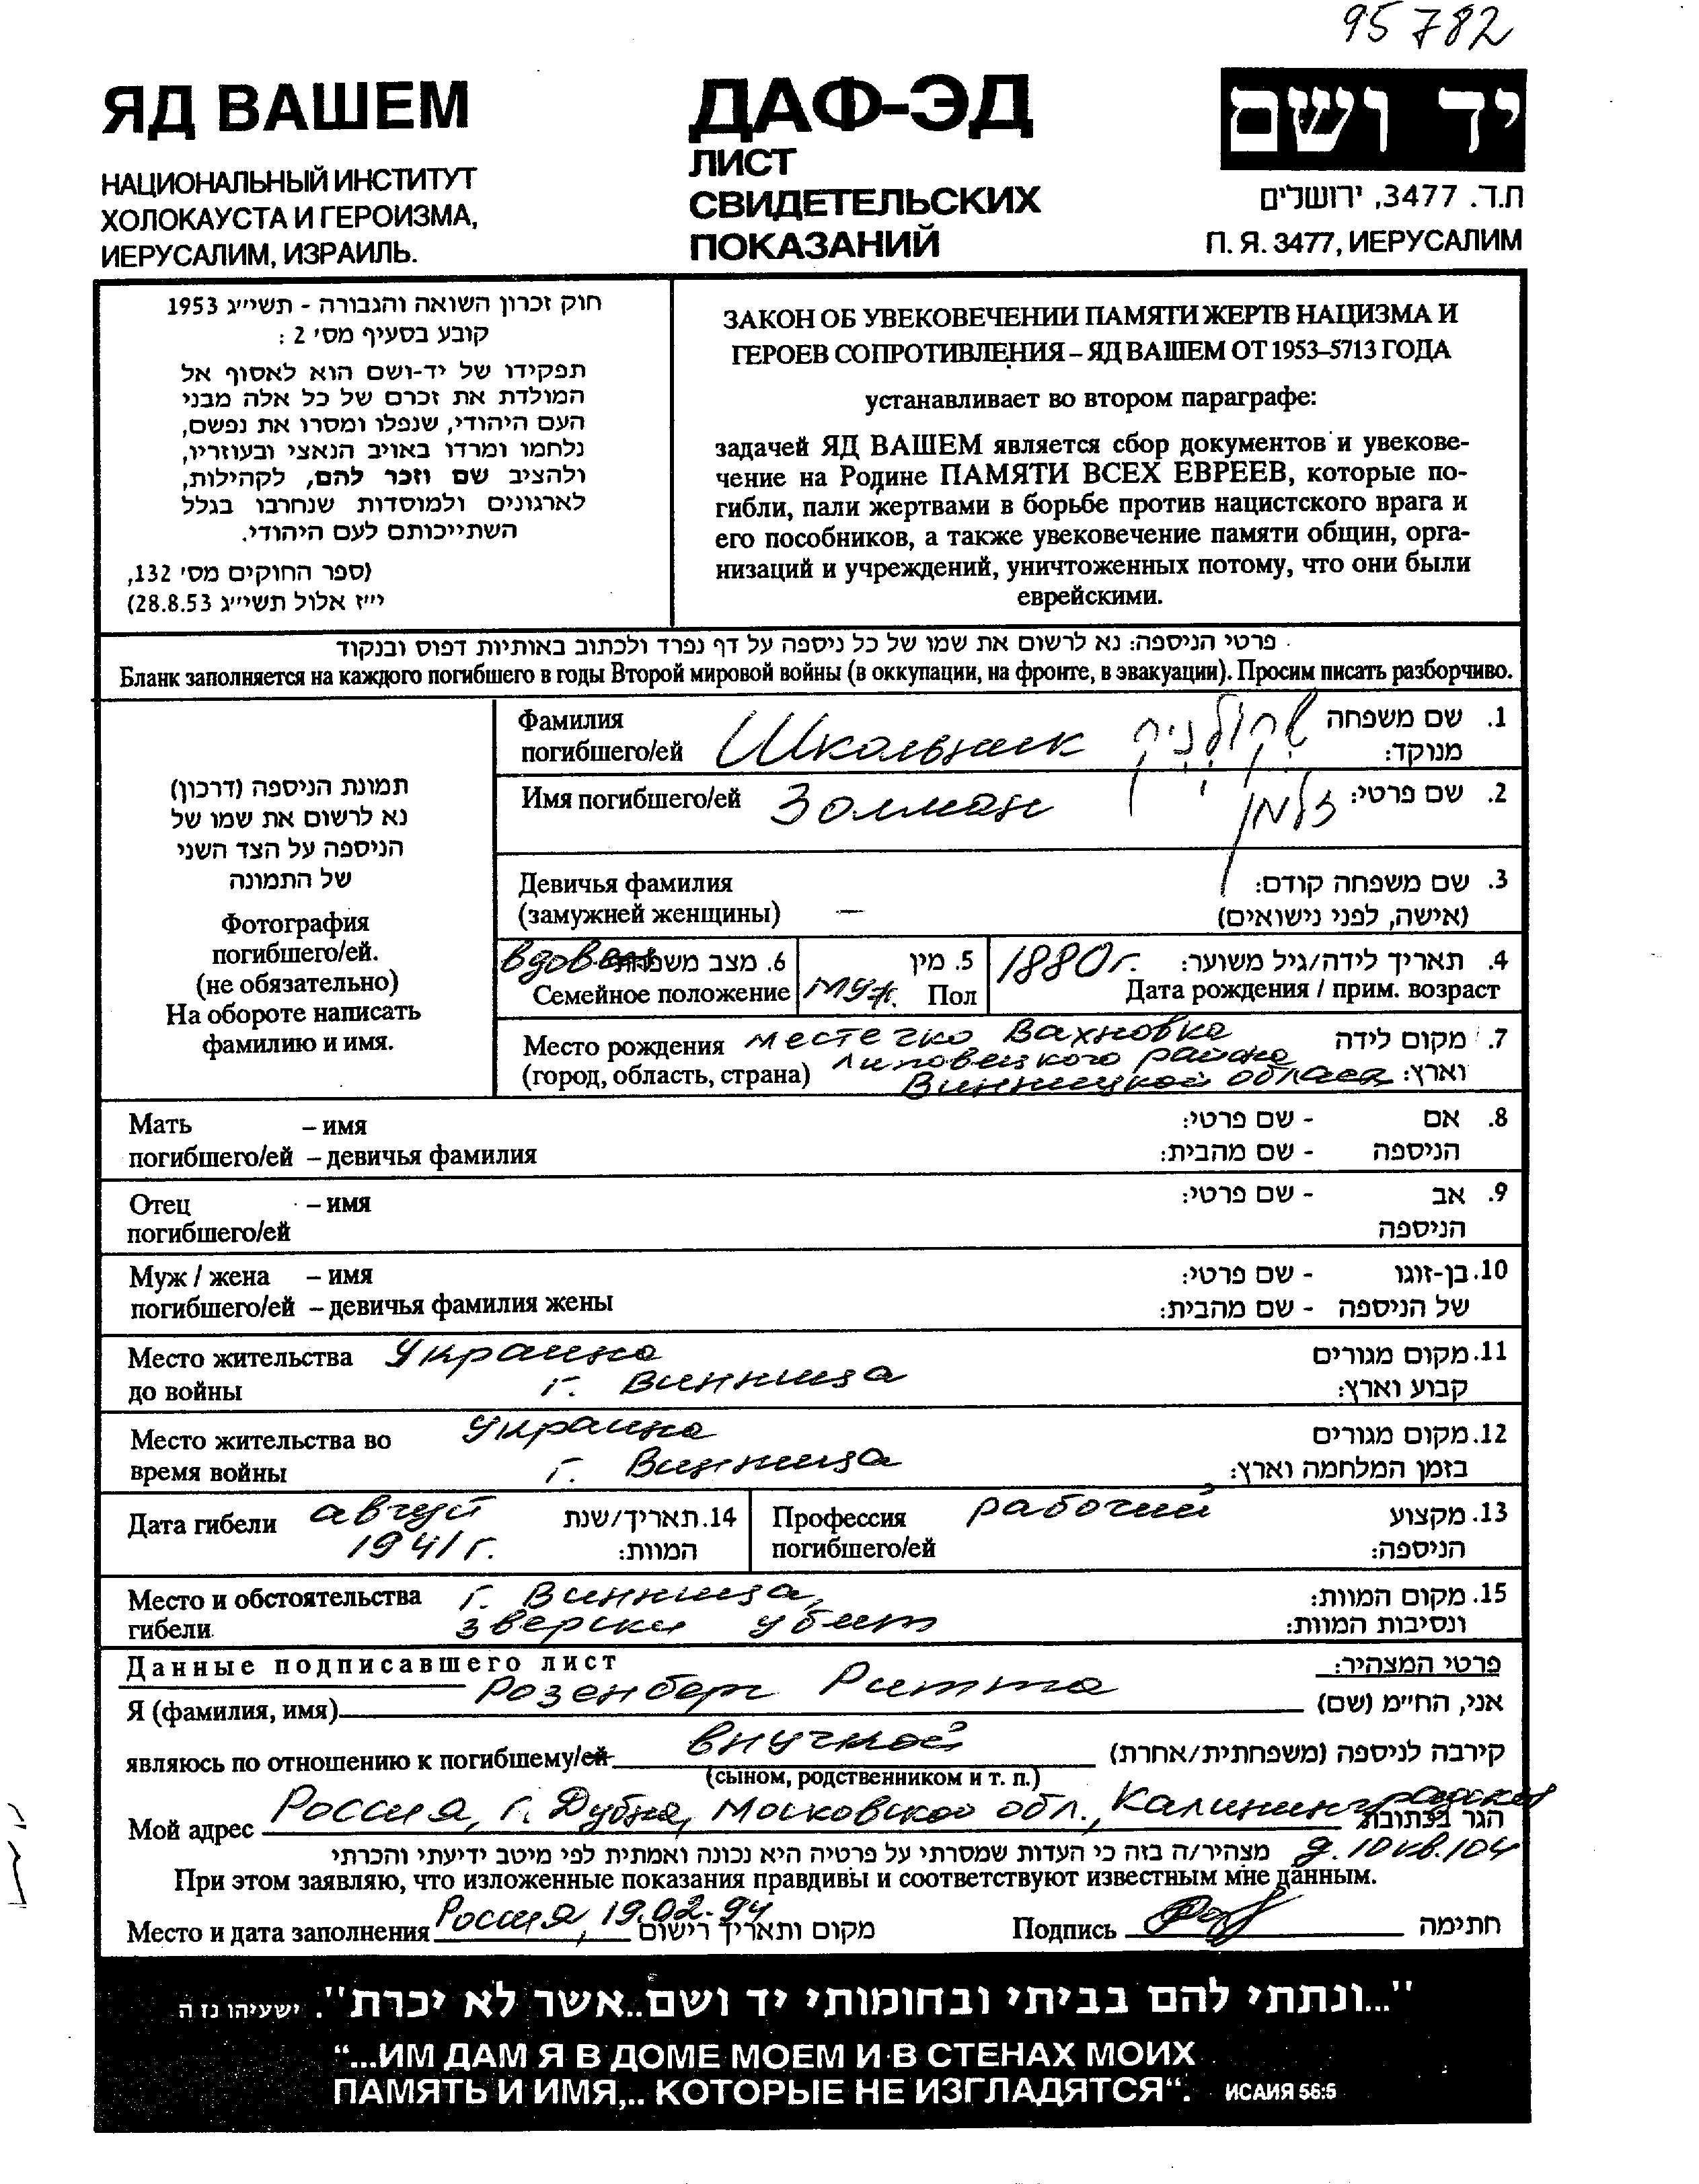 95 782
ЯД ВАШЕМ
НАЦИОНАЛЬНЫЙ ИНСТИТУТ
ХОЛОКАУСТА И ГЕРОИЗМА,
ИЕРУСАЛИМ, ИЗРАИЛЬ.
ДАФ-ЭД
ЛИСТ
СВИДЕТЕЛЬСКИХ
ПОКАЗАНИЙ
יד ושם
ת.ד. 3477, ירושלים
П. Я. 3477, ИЕРУСАЛИМ
חוק זכרון השואה והגבורה - תשי״ג 1953
קובע בסעיף מס׳ 2 :
תפקידו של יד-ושם הוא לאסוף אל
המולדת את זכרם של כל אלה מבני
העם היהודי, שנפלו ומסרו את נפשם,
נלחמו ומרדו באויב הנאצי ובעוזריו,
ולהציב שם וזכר להם, לקהילות,
לארגונים ולמוסדות שנחרבו בגלל
השתייכותם לעם היהודי.
(ספר החוקים מס׳ 132,
י״ז אלול תשי״ג 28.8.53)
ЗАКОН ОБ УВЕКОВЕЧЕНИИ ПАМЯТИ ЖЕРТВ НАЦИЗМА И
ГЕРОЕВ СОПРОТИВЛЕНИЯ – ЯД ВАШЕМ ОТ 1953–5713 ГОДА
устанавливает во втором параграфе:
задачей ЯД ВАШЕМ является сбор документов и увекове-
чение на Родине ПАМЯТИ ВСЕХ ЕВРЕЕВ, которые по-
гибли, пали жертвами в борьбе против нацистского врага и
его пособников, а также увековечение памяти общин, орга-
низаций и учреждений, уничтоженных потому, что они были
еврейскими.
פרטי הניספה: נא לרשום את שמו של כל ניספה על דף נפרד ולכתוב באותיות דפוס ובנקוד
Бланк заполняется на каждого погибшего в годы Второй мировой войны (в оккупации, на фронте, в эвакуации). Просим писать разборчиво.
תמונת הניספה (דרכון)
נא לרשום את שמו של
הניספה על הצד השני
של התמונה
Фотография
погибшего/ей.
(не обязательно)
На обороте написать
фамилию и имя.
Фамилия Школьник שקולניק 1. שם משפחה
погибшего/ей מנוקד:
Имя погибшего/ей Залман זלמן 2. שם פרטי:
Девичья фамилия 3. שם משפחה קודם:
(замужней женщины) — (אישה, לפני נישואים)
вдовец 6. מצב משפחתי 5. מין 1880 г. 4. תאריך לידה/גיל משוער:
Семейное положение муж. Пол Дата рождения / прим. возраст
Место рождения местечко Вахновка 7. מקום לידה
Липовецкого района
(город, область, страна) Винницкой области וארץ:
Мать – имя 8. אם - שם פרטי:
погибшего/ей – девичья фамилия הניספה - שם מהבית:
Отец – имя 9. אב - שם פרטי:
погибшего/ей הניספה
Муж / жена – имя 10. בן-זוגו - שם פרטי:
погибшего/ей – девичья фамилия жены של הניספה - שם מהבית:
Место жительства Украина 11. מקום מגורים
до войны г. Винница קבוע וארץ:
Место жительства во Украина 12. מקום מגורים
время войны г. Винница בזמן המלחמה וארץ:
Дата гибели август 14. תאריך/שנת Профессия рабочий 13. מקצוע
1941 г. המוות: погибшего/ей הניספה:
Место и обстоятельства г. Винница, 15. מקום המוות:
гибели зверски убит ונסיבות המוות:
Данные подписавшего лист פרטי המצהיר:
Я (фамилия, имя) Розенберг Римма אני, הח״מ (שם)
являюсь по отношению к погибшему/ей внучкой קירבה לניספה (משפחתית/אחרת)
(сыном, родственником и т. п.)
Мой адрес Россия, г. Дубна, Московской обл., Калининградская הגר בכתובת
מצהיר/ה בזה כי העדות שמסרתי על פרטיה היא נכונה ואמתית לפי מיטב ידיעתי והכרתי д. 10 кв. 104
При этом заявляю, что изложенные показания правдивы и соответствуют известным мне данным.
Место и дата заполнения Россия, 19.02.94 מקום ותאריך רישום Подпись חתימה
"...ונתתי להם בביתי ובחומותי יד ושם..אשר לא יכרת". ישעיהו נז ה
“...ИМ ДАМ Я В ДОМЕ МОЕМ И В СТЕНАХ МОИХ
ПАМЯТЬ И ИМЯ,.. КОТОРЫЕ НЕ ИЗГЛАДЯТСЯ“. ИСАИЯ 56:5